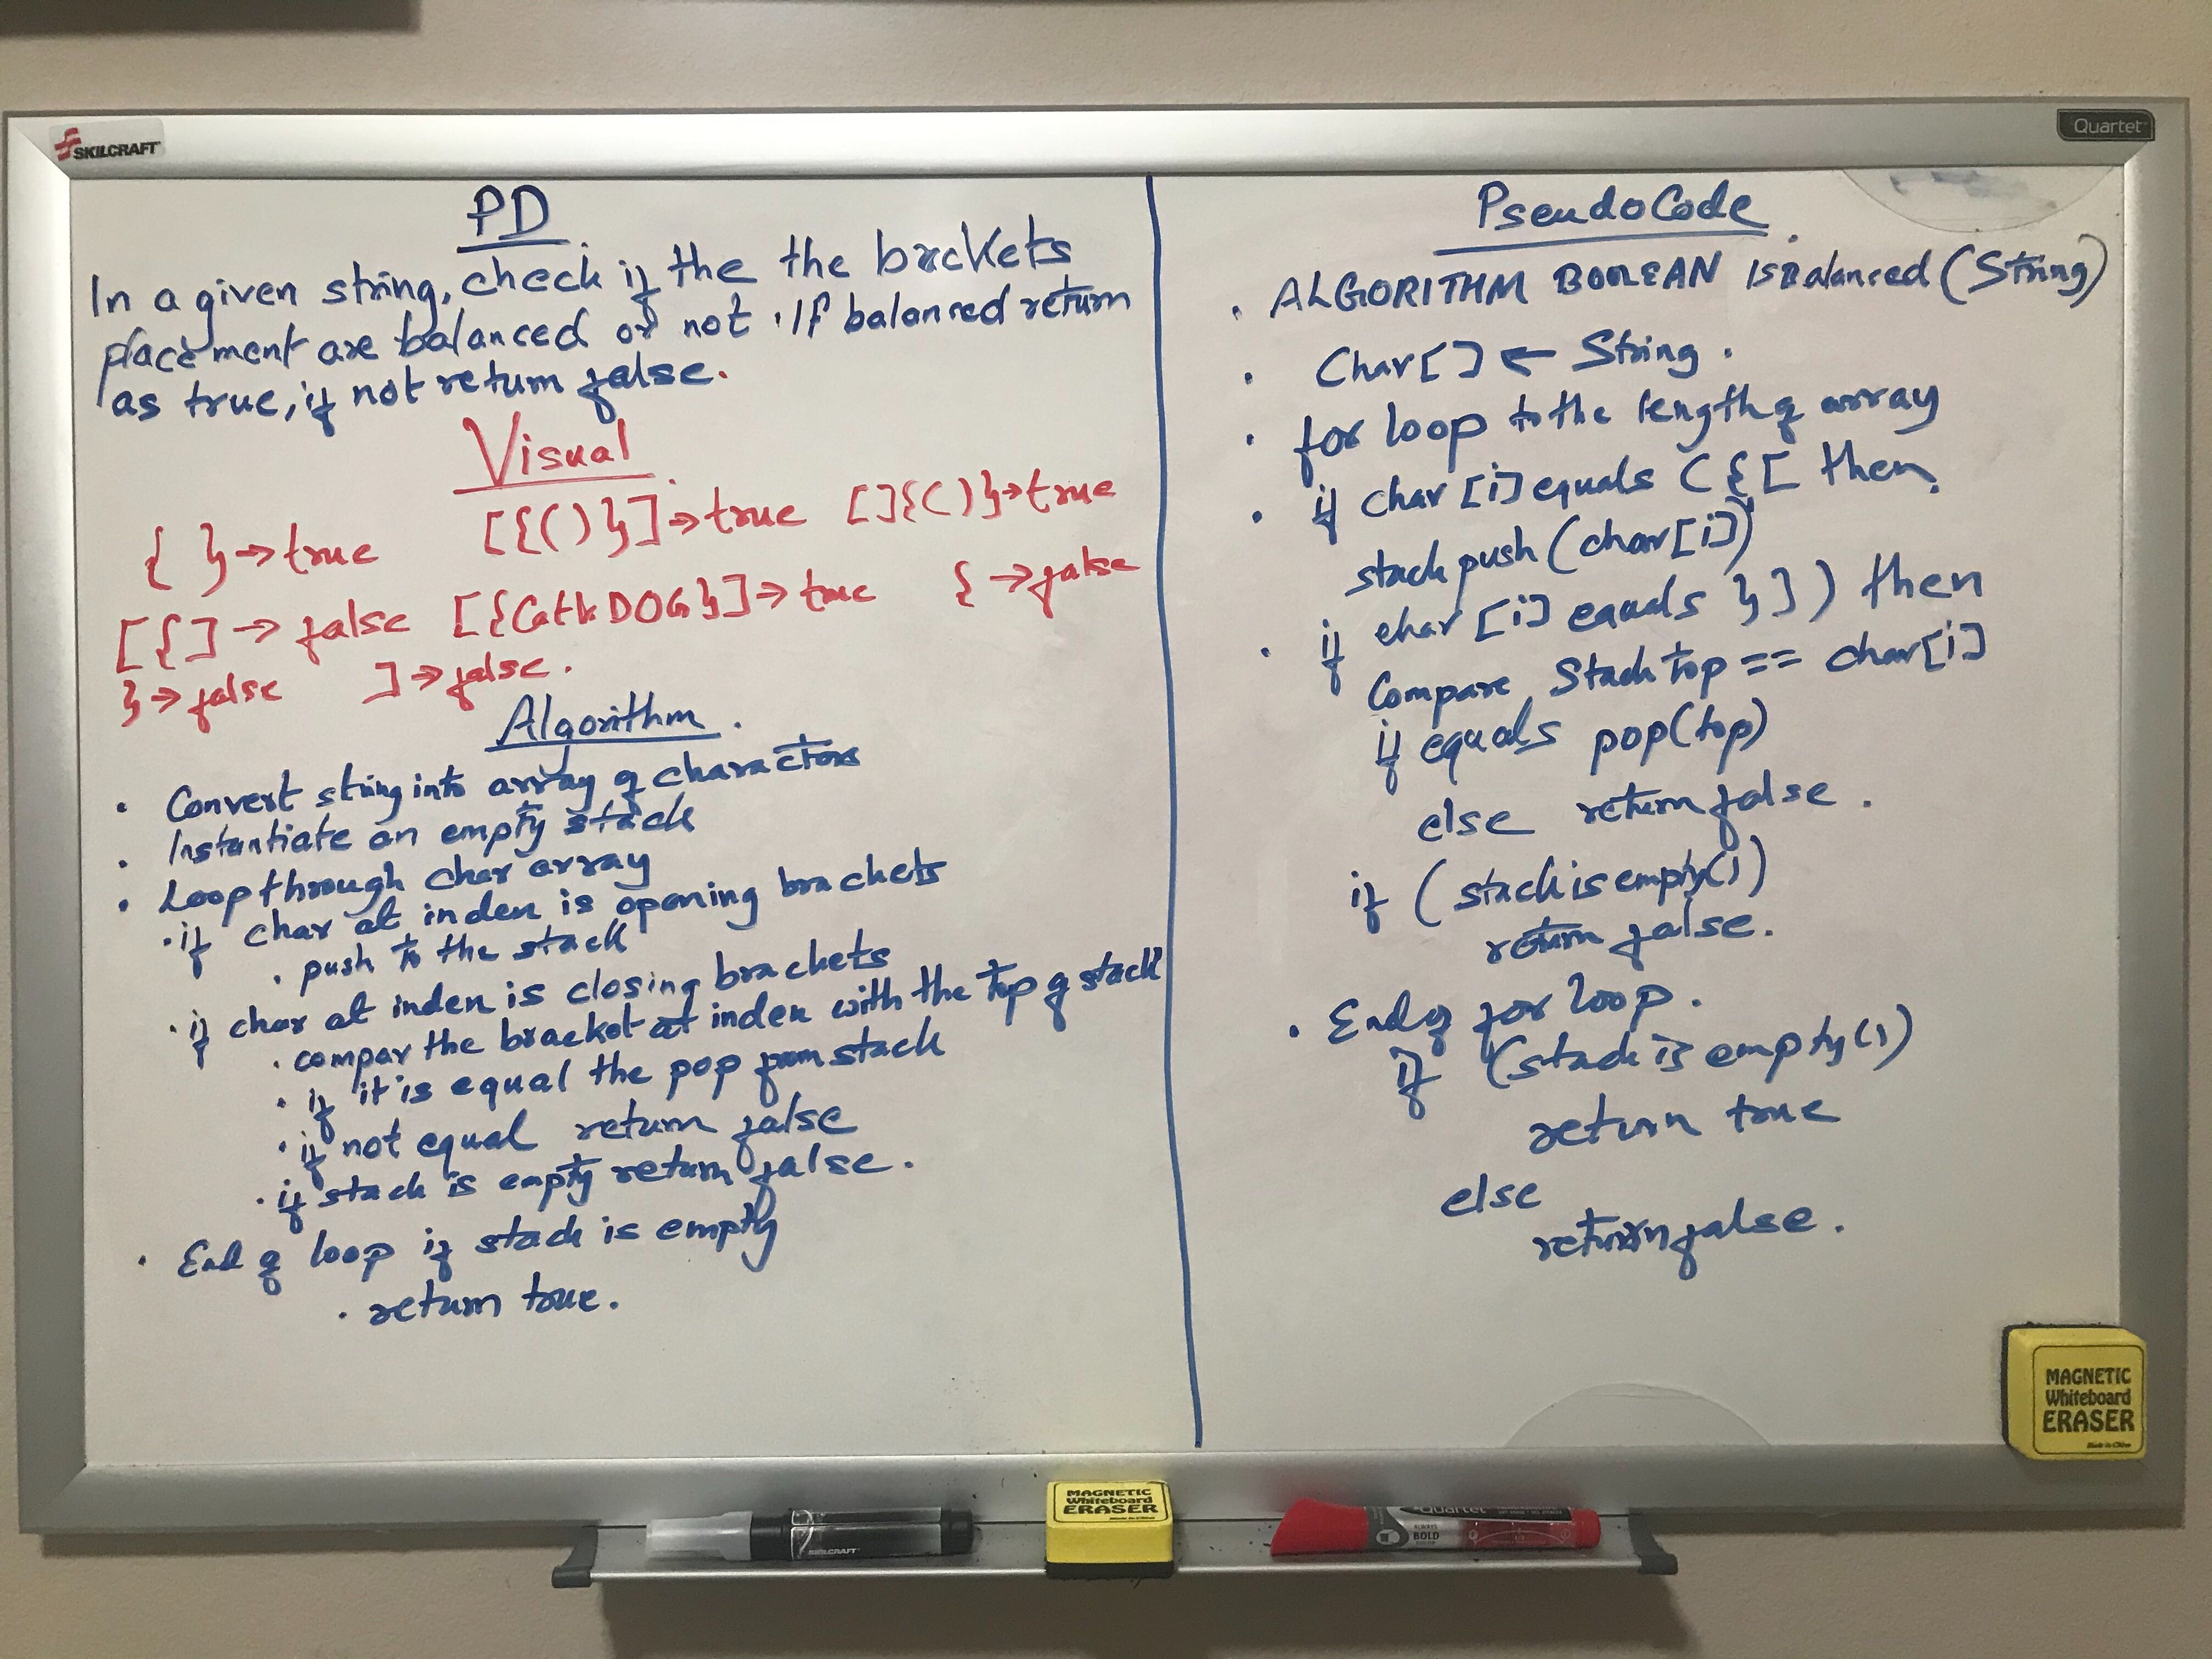 SKILCRAFT
Quartet
PD
In a given string, check if the the brackets
placement are balanced or not. If balanced return
as true, if not return false.
Visual
{ } → true [{()}] → true []{()} → true
[{] → false [{Cat&DOG}] → true { → false
} → false ] → false.
Algorithm.
• Convert string into array of charactors
• Instantiate an empty stack
• Loop through char array
• if char at index is opening brackets
• push to the stack
• if char at index is closing brackets
• compar the bracket at index with the top of stack
• if it is equal the pop from stack
• if not equal return false
• if stack is empty return false.
• End of loop if stack is empty
• return true.
PseudoCode
• ALGORITHM BOOLEAN isBalanced (String)
• Char[] ← String.
• for loop to the length of array
• if char [i] equals ( { [ then
stack push (char[i])
• if char [i] equals } ] ) then
Compare Stack top == char[i]
if equals pop(top)
else return false.
if (stack is empty())
return false.
• End of for loop.
if (stack is empty())
return true
else
return false.
MAGNETIC
Whiteboard
ERASER
Made in China
SKILCRAFT
MAGNETIC
Whiteboard
ERASER
Quartet
ALWAYS
BOLD